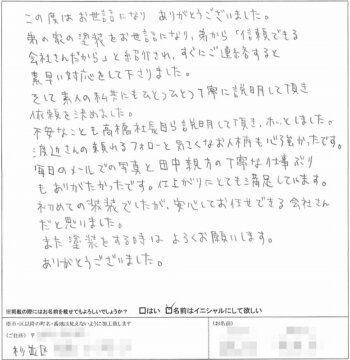 この度はお世話になり ありがとうございました。
弟の家の塗装をお世話になり、弟から「信頼できる
会社さんだから」と紹介され、すぐにご連絡すると
素早い対応をして下さりました。
そして素人の私共にもひとつひとつ丁寧に説明して頂き
依頼を決めました。
不安なことも高橋社長自ら説明して頂き、ホッとしました。
渡辺さんの頼れるフォローと気さくなお人柄も心強かったです。
毎日のメールでの写真と田中親方の丁寧な仕事ぶり
もありがたかったです。仕上がりにとても満足しています。
初めての塗装でしたが、安心してお任せできる会社さん
だと思いました。
また塗装をする時は よろしくお願いします。
ありがとうございました。
※掲載の際にはお名前を載せてもよろしいでしょうか？ □はい ☑名前はイニシャルにして欲しい
※市・区以降の町名・番地は見えないように加工致します
(ご住所) 〒
(お名前)
杉並区